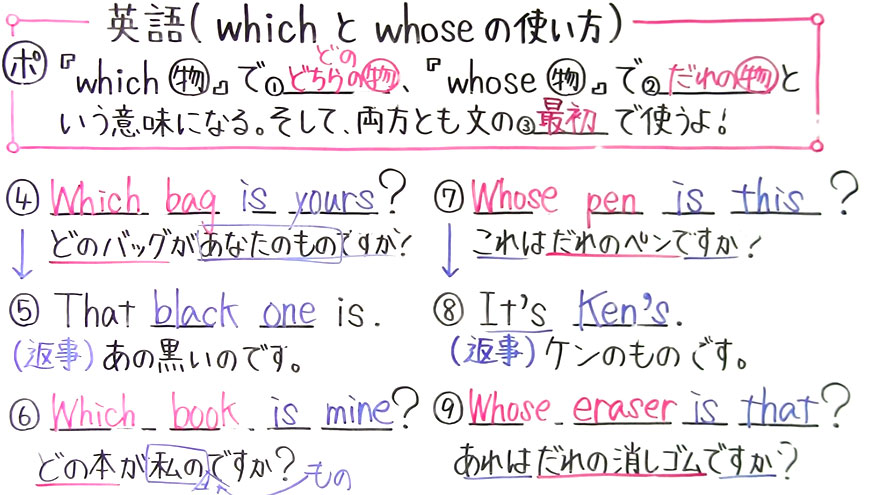 英語(whichとwhoseの使い方)
ポ『which 物』で①どちらの物、『whose 物』で②だれの物と
どの
いう意味になる。そして、両方とも文の③最初で使うよ!
④ Which bag is yours?
どのバッグがあなたのものですか?
⑤ That black one is.
(返事)あの黒いのです。
⑥ Which book is mine?
どの本が私のですか?
もの
⑦ Whose pen is this?
これはだれのペンですか?
⑧ It's Ken's.
(返事)ケンのものです。
⑨ Whose eraser is that?
あれはだれの消しゴムですか?